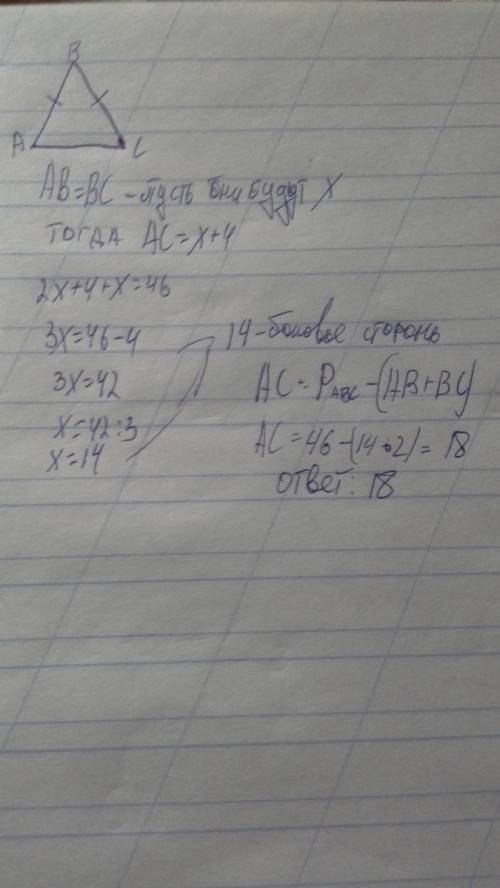 B
A C
AB=BC - пусть они будут x
тогда AC=x+4
2x+4+x=46
3x=46-4
3x=42
x=42:3
x=14
14-боковые стороны
AC=P_ABC-(AB+BC)
AC=46-(14·2)=18
Ответ: 18